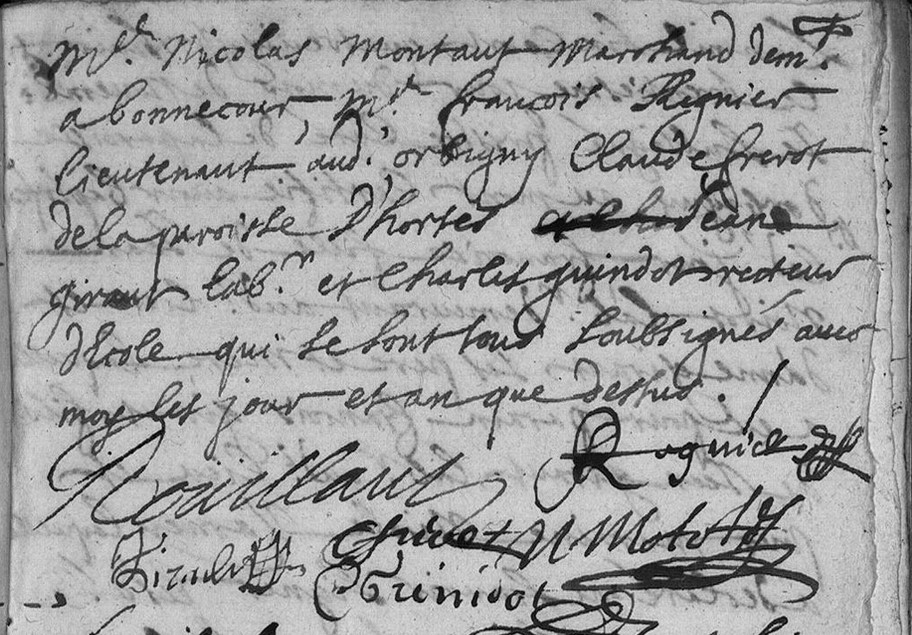 Mre. Nicolas Montaut Marchand demt.
a bonnecour, Mre francois Regnier
lieutenant aud. orbigny Claude frerot
de la paroisse D'hortes Jean
giraut lab.r et Charles guindot recteur
dEcole qui se sont tous soubsignés avec
moy les jour et an que dessus.
Rouillaut Regnier
Girault N Motot
Guindot